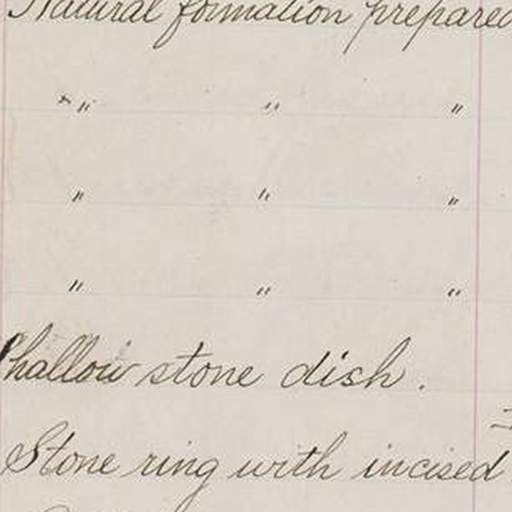 Natural formation prepared
" " "
" " "
" " "
Shallow stone dish.
Stone ring with incised